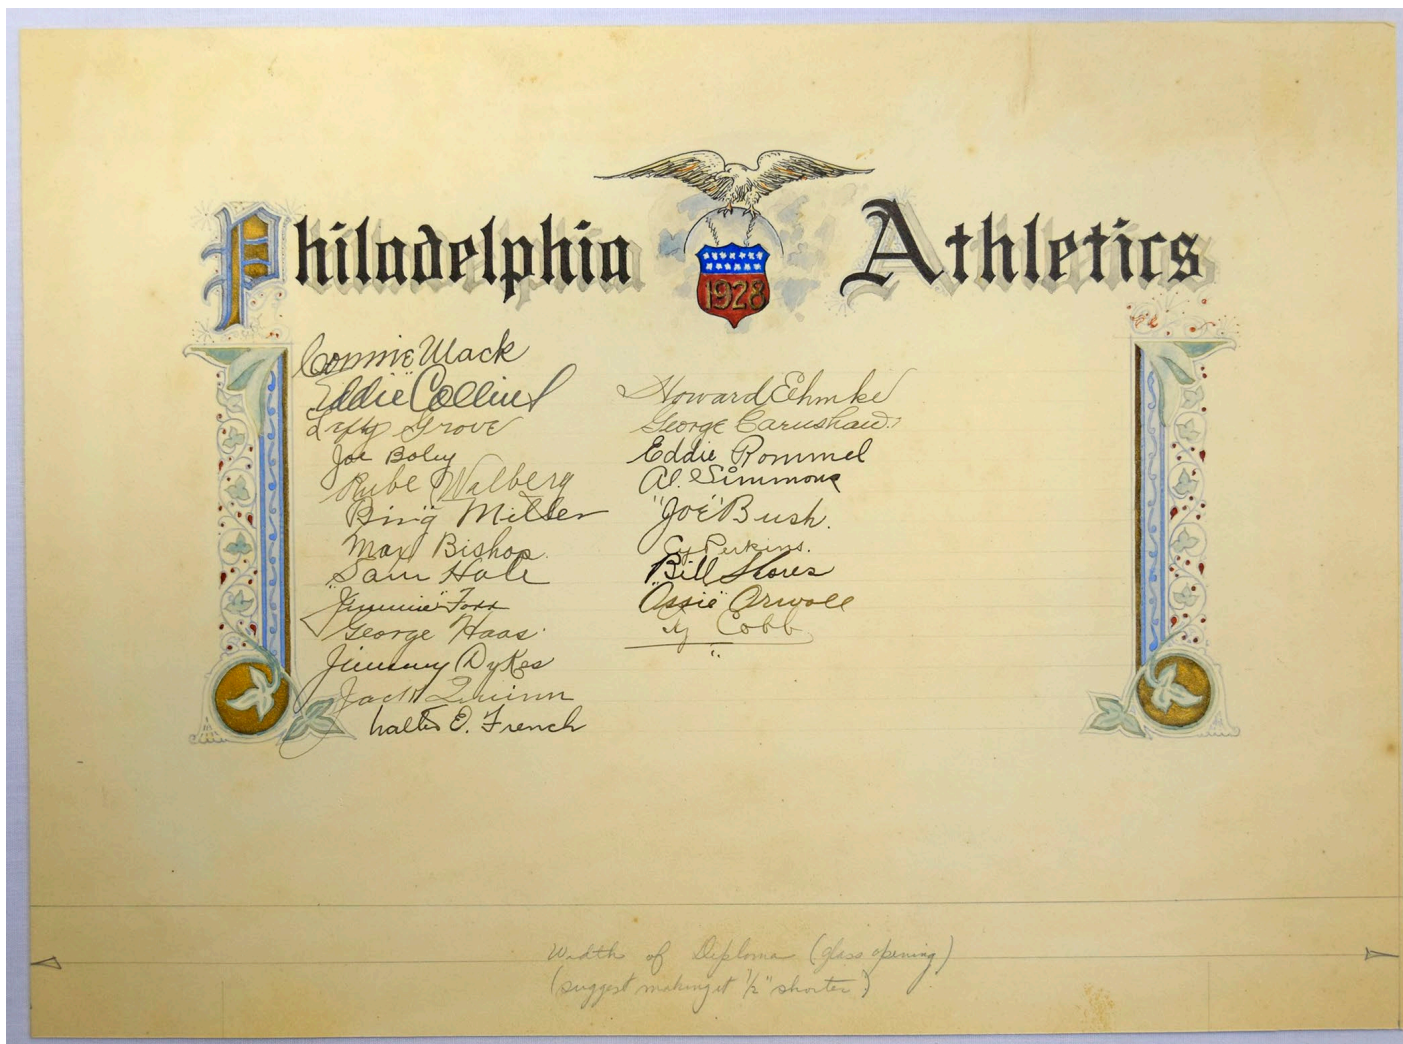 Philadelphia Athletics
1928
Connie Mack
Eddie Collins
Lefty Grove
Joe Boley
Rube Walberg
Bing Miller
Max Bishop.
Sam Hale
"Jimmie" Foxx
George Haas.
Jimmy Dykes
Jack Quinn
Walter E. French
Howard Ehmke
George Earnshaw.
Eddie Rommel
Al. Simmons
"Joe" Bush.
Cy Perkins.
Bill Shores
"Ossie" Orwoll
Ty Cobb
Width of Diploma (glass opening)
(suggest making it 1/2" shorter)